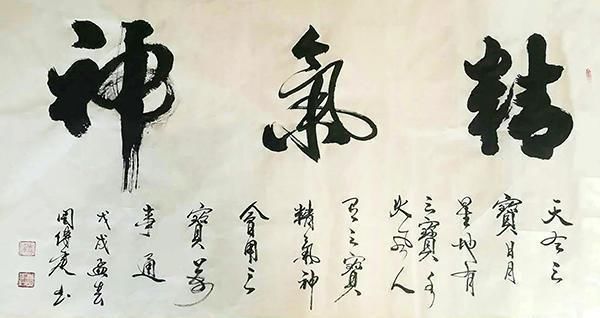 精氣神
天有三
寶日月
星地有
三寶水
火風人
有三寶
精氣神
會用三
寶萬
事通
戊戌孟春
周书